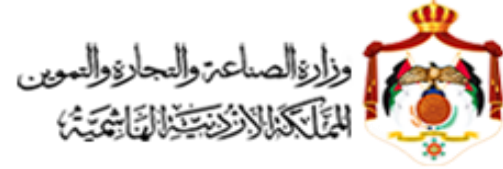 وزارة الصناعة والتجارة والتموين
المملكة الأردنية الهاشمية